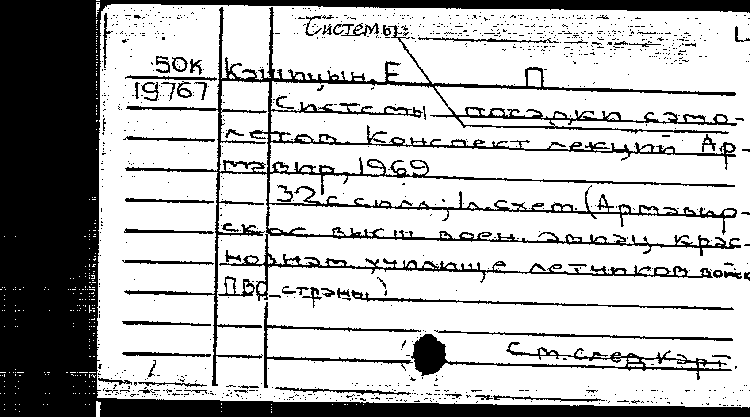 Системы
50К Кашицын, Е П
19767 Системы посадки само-
летов. Конспект лекций Ар-
мавир, 1969
32 с с илл; 1 л. схем (Армавир-
ское высш воен. авиац. крас-
нознам училище летчиков войск
ПВО страны)
См. след карт.